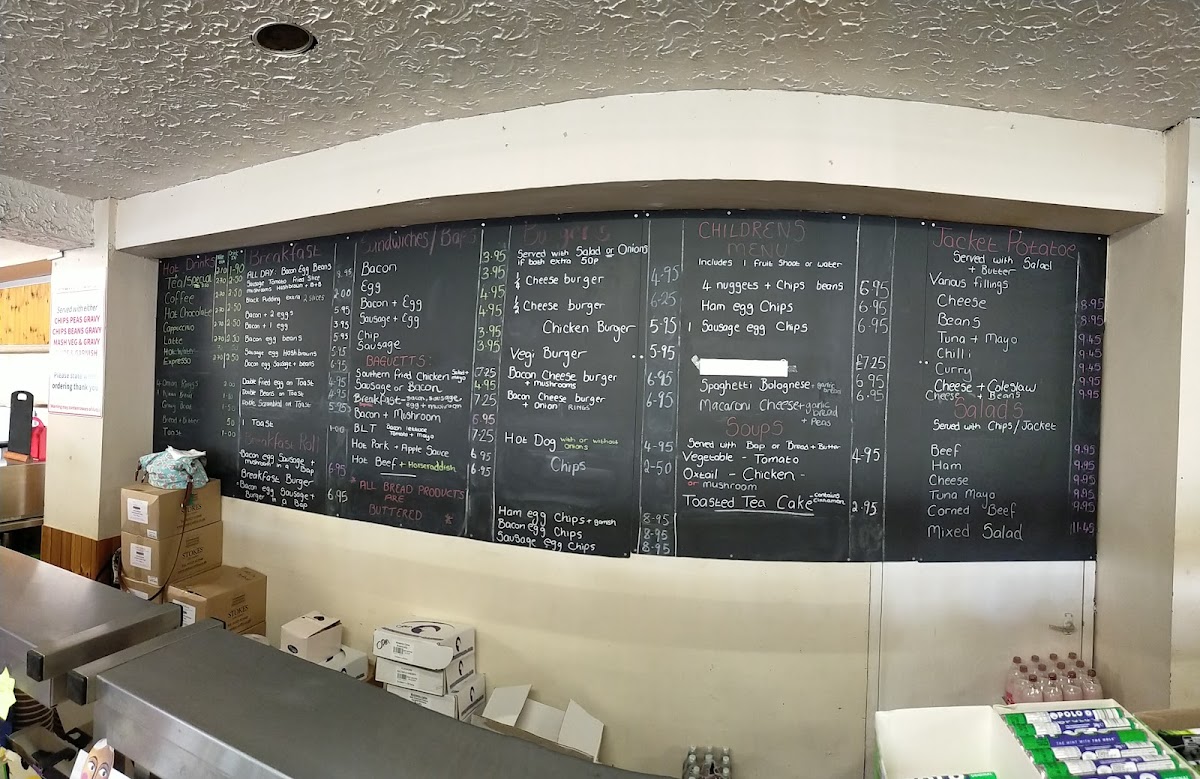 Served with either
CHIPS PEAS GRAVY
CHIPS BEANS GRAVY
MASH VEG & GRAVY
ordering thank you
Hot Drinks
Tea/special
Coffee
Hot Chocolate
Cappucino
Latte
Expresso
4 Onion Rings
Gravy Boat
Bread + Butter
Toast
Breakfast
ALL DAY Bacon Egg Beans
Sausage Tomato Fried Slice
mushrooms Hashbrown + B+B
Black Pudding extra 2 slices 2.00
Bacon + 2 eggs
Bacon + 1 egg
Bacon egg beans
Sausage egg Hashbrowns
Bacon egg Sausage + beans
Double Fried egg on Toast
Double Beans on Toast
Double Scrambled on Toast
1 Toast
Breakfast Roll
Bacon egg Sausage +
mushroom in a Bap 6.95
Breakfast Burger
Bacon egg Sausage + 6.95
Burger in a Bap
Sandwiches/Baps
Bacon 3.95
Egg 3.95
Bacon + Egg 4.95
Sausage + Egg 4.95
Chip 3.95
Sausage 3.95
BAGUETTS:
Southern fried Chicken Salad + mayo 7.25
Sausage or Bacon 4.95
Breakfast - bacon, sausage, egg + mushroom 7.25
Bacon + Mushroom 6.95
B.L.T Bacon lettuce Tomato + mayo 7.25
Hot Pork + Apple Sauce 6.95
Hot Beef + Horseraddish 6.95
ALL BREAD PRODUCTS
ARE
BUTTERED
Burgers
Served with Salad or Onions
if both extra 50P
1/4 Cheese burger 4.95
1/2 Cheese burger 6.25
Chicken Burger 5.95
Vegi Burger 5.95
Bacon Cheese burger 6.95
+ mushrooms
Bacon Cheese burger 6.95
+ onion RINGS
Hot Dog with or without onions 4.95
Chips 2.50
Ham egg Chips + garnish 8.95
Bacon egg Chips 8.95
Sausage egg Chips 8.95
CHILDRENS
MENU
Includes 1 Fruit Shoot or water
4 nuggets + Chips beans 6.95
Ham egg Chips 6.95
1 Sausage egg Chips 6.95
£7.25
Spaghetti Bolognese + garlic bread 6.95
Macaroni Cheese + garlic bread + Peas 6.95
Soups
Served with Bap or Bread + Butter
Vegetable - Tomato 4.95
Oxtail - Chicken -
or mushroom
Toasted Tea Cake - contains cinnamon 2.95
Jacket Potatoe
Served with Salad
+ Butter
Various fillings
Cheese 8.95
Beans 8.95
Tuna + Mayo 9.45
Chilli 9.45
Curry 9.45
Cheese + Coleslaw 9.45
Cheese + Beans 9.45
Salads
Served with Chips/Jacket
Beef 9.95
Ham 9.95
Cheese 9.95
Tuna Mayo 9.95
Corned Beef 9.95
Mixed Salad 11.45
STOKES
STOKES
POLO
THE MINT WITH THE HOLE